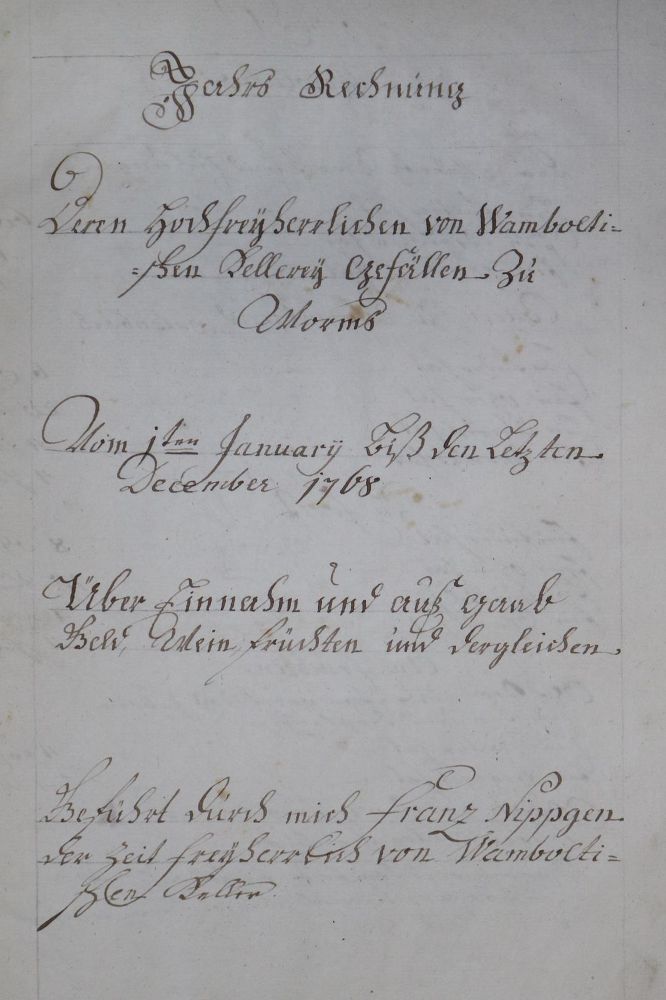 Jahrs Rechnung
Deren Hochfreÿherrlichen von Wambolti-
=schen Kellereÿ Gefällen Zu
Worms
Vom 1ten January biß den Letzten
December 1768
Über Einnahm und auß gaab
Geld, Wein früchten und dergleichen.
Geführt durch mich Franz Nippgen
der Zeit freÿherrlich von Wambolti=
schen Keller